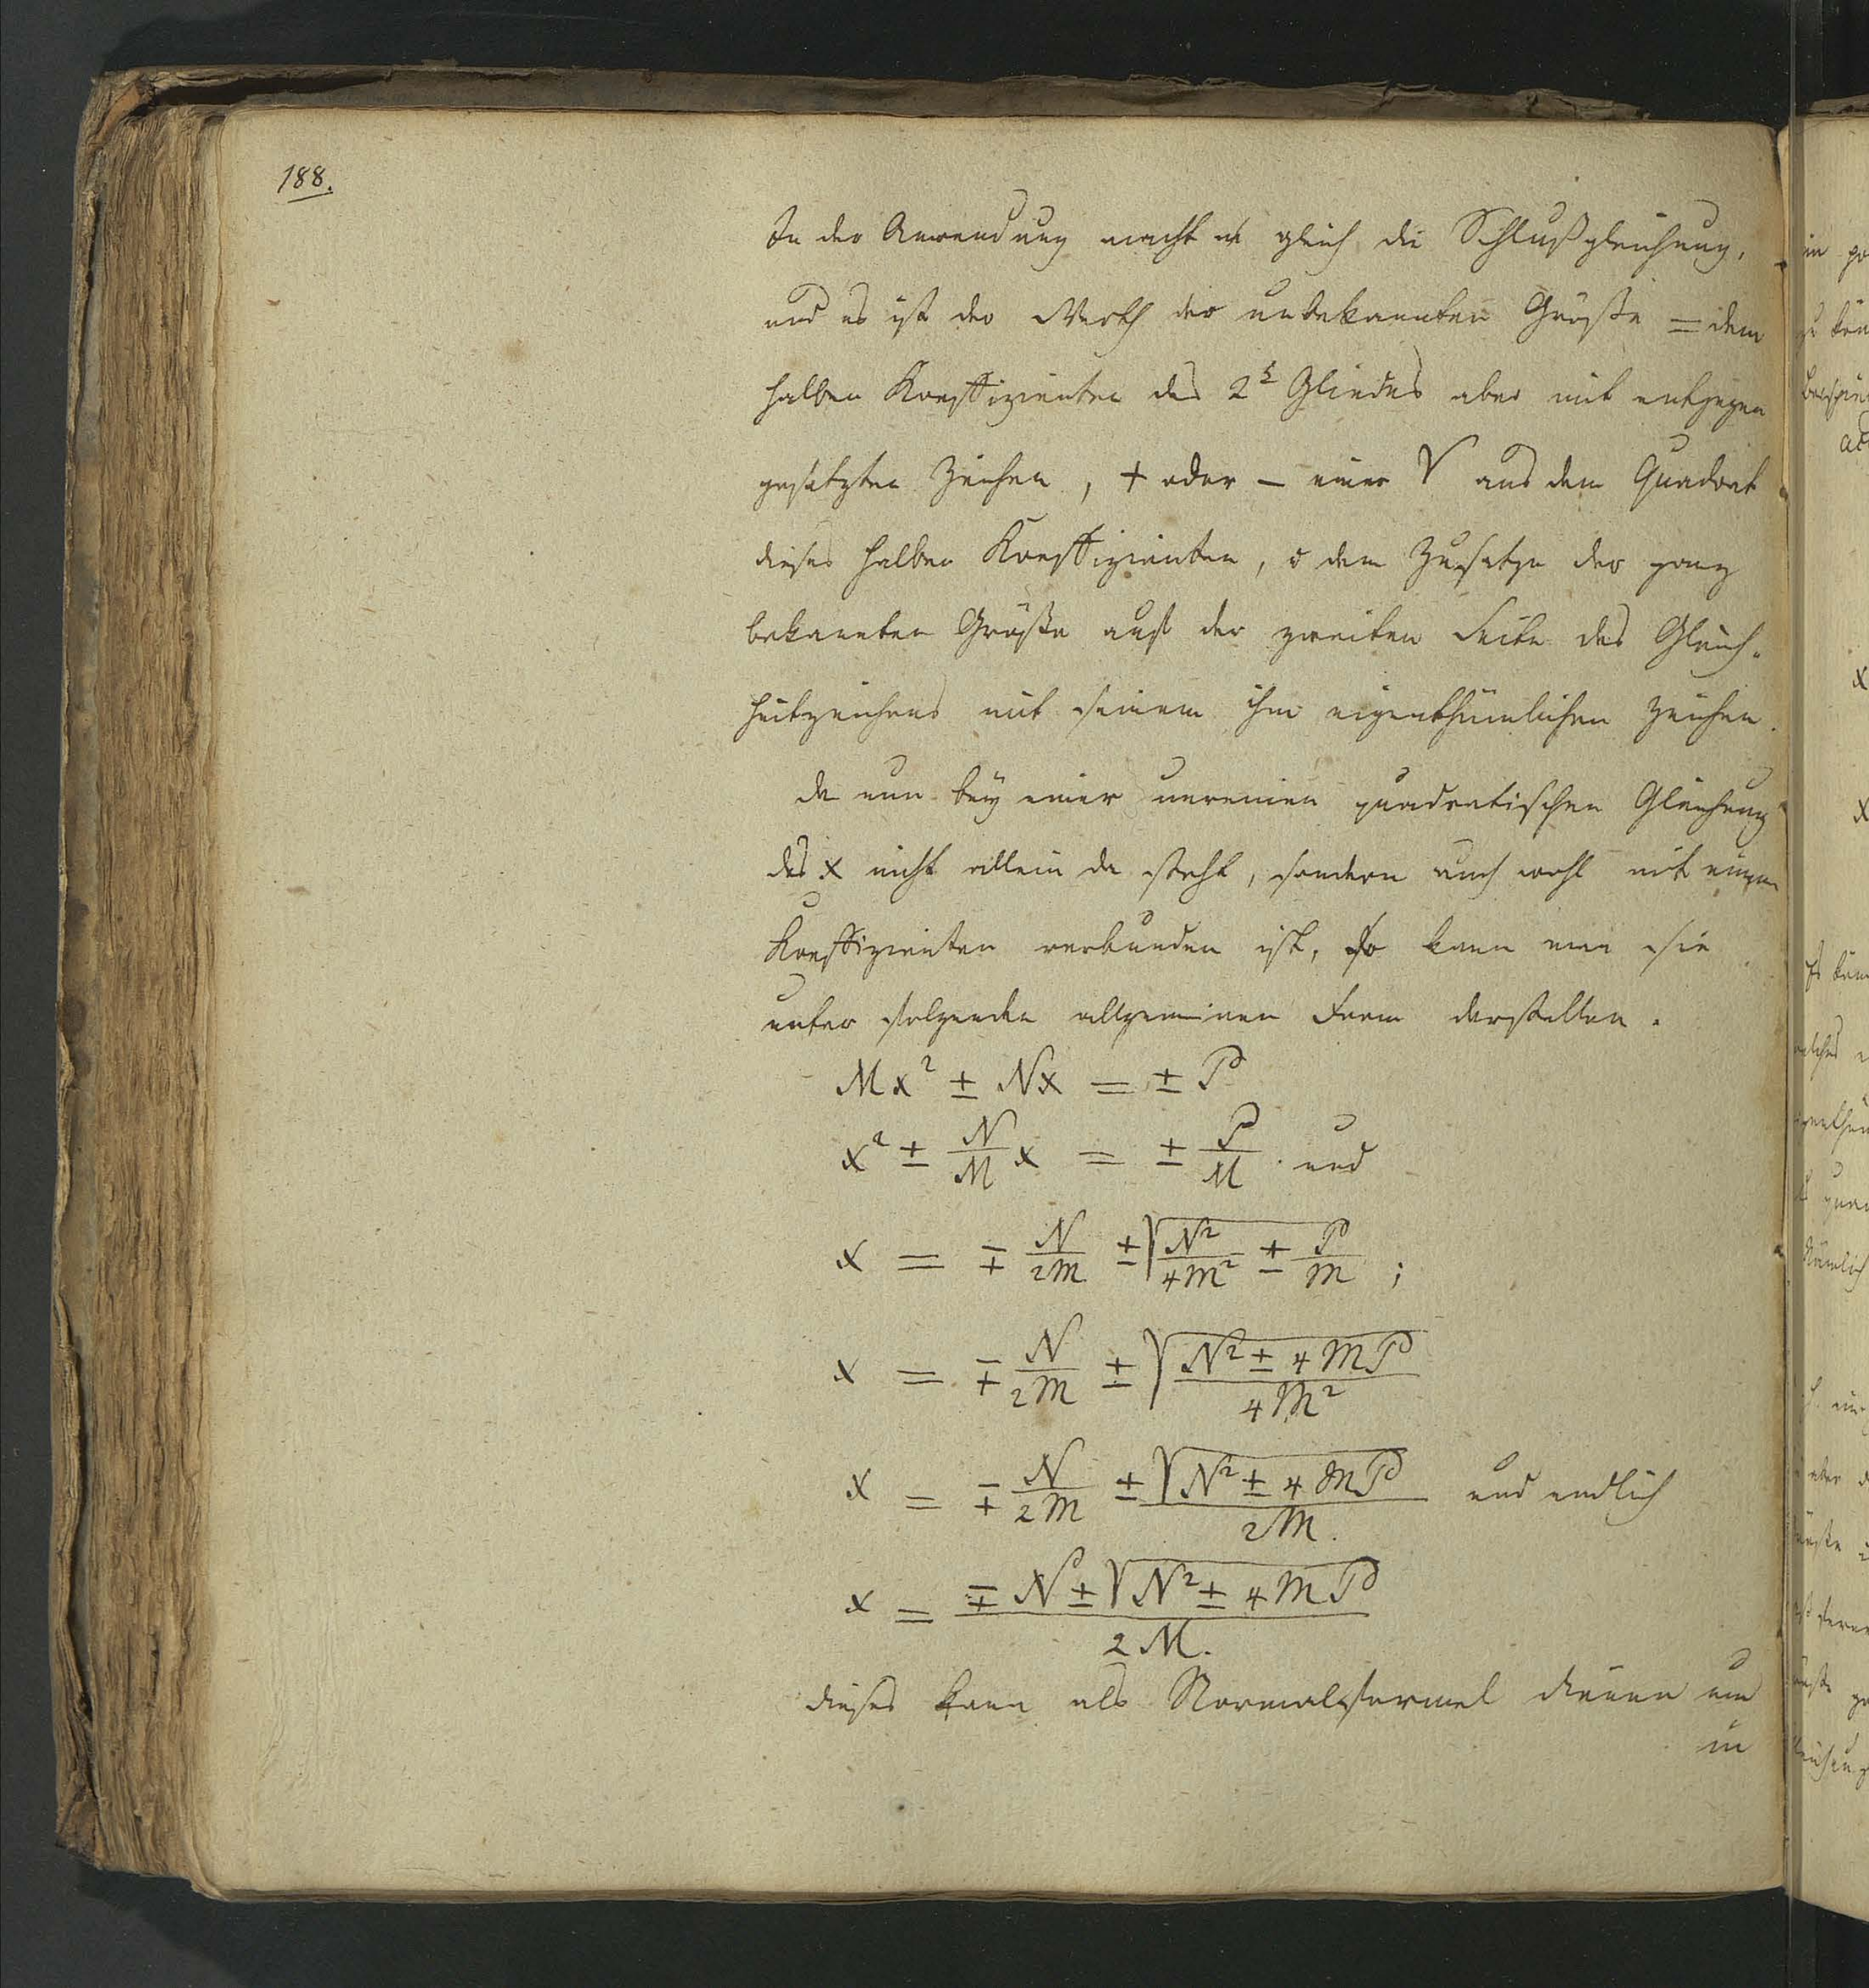 188.
In der Anwendung macht es gleich die Schlußgleichung,
und es ist der Werth der unbekannten Größe = dem
halben Koeffizienten des 2t Gliedes aber mit entgegen
gesetzten Zeichen, + oder – einer √ aus dem Quadrat
dieses halben Koeffizienten, dem Zusatze der ganz
bekannten Größe auf der zweiten Seite des Gleich-
heitzeichens mit seinem ihm eigenthümlichen Zeichen.
da nun bey einer unreinen quadratischen Gleichung
das x nicht allein da steht, sondern auch wohl mit einem
Koeffizienten verbunden ist, so kann man sie
unter folgender allgemeinen Form darstellen.
Mx² ± Nx = ± P
x² ± N/M x = ± P/M. und
x = ∓ N/2M ± √(N²/4M² ± P/M);
x = ∓ N/2M ± √((N² ± 4MP)/4M²)
x = ∓ N/2M ± √(N² ± 4MP)/2M. und endlich
x = (∓ N ± √(N² ± 4MP))/2M.
dieses kann als Normalformel dienen um
in